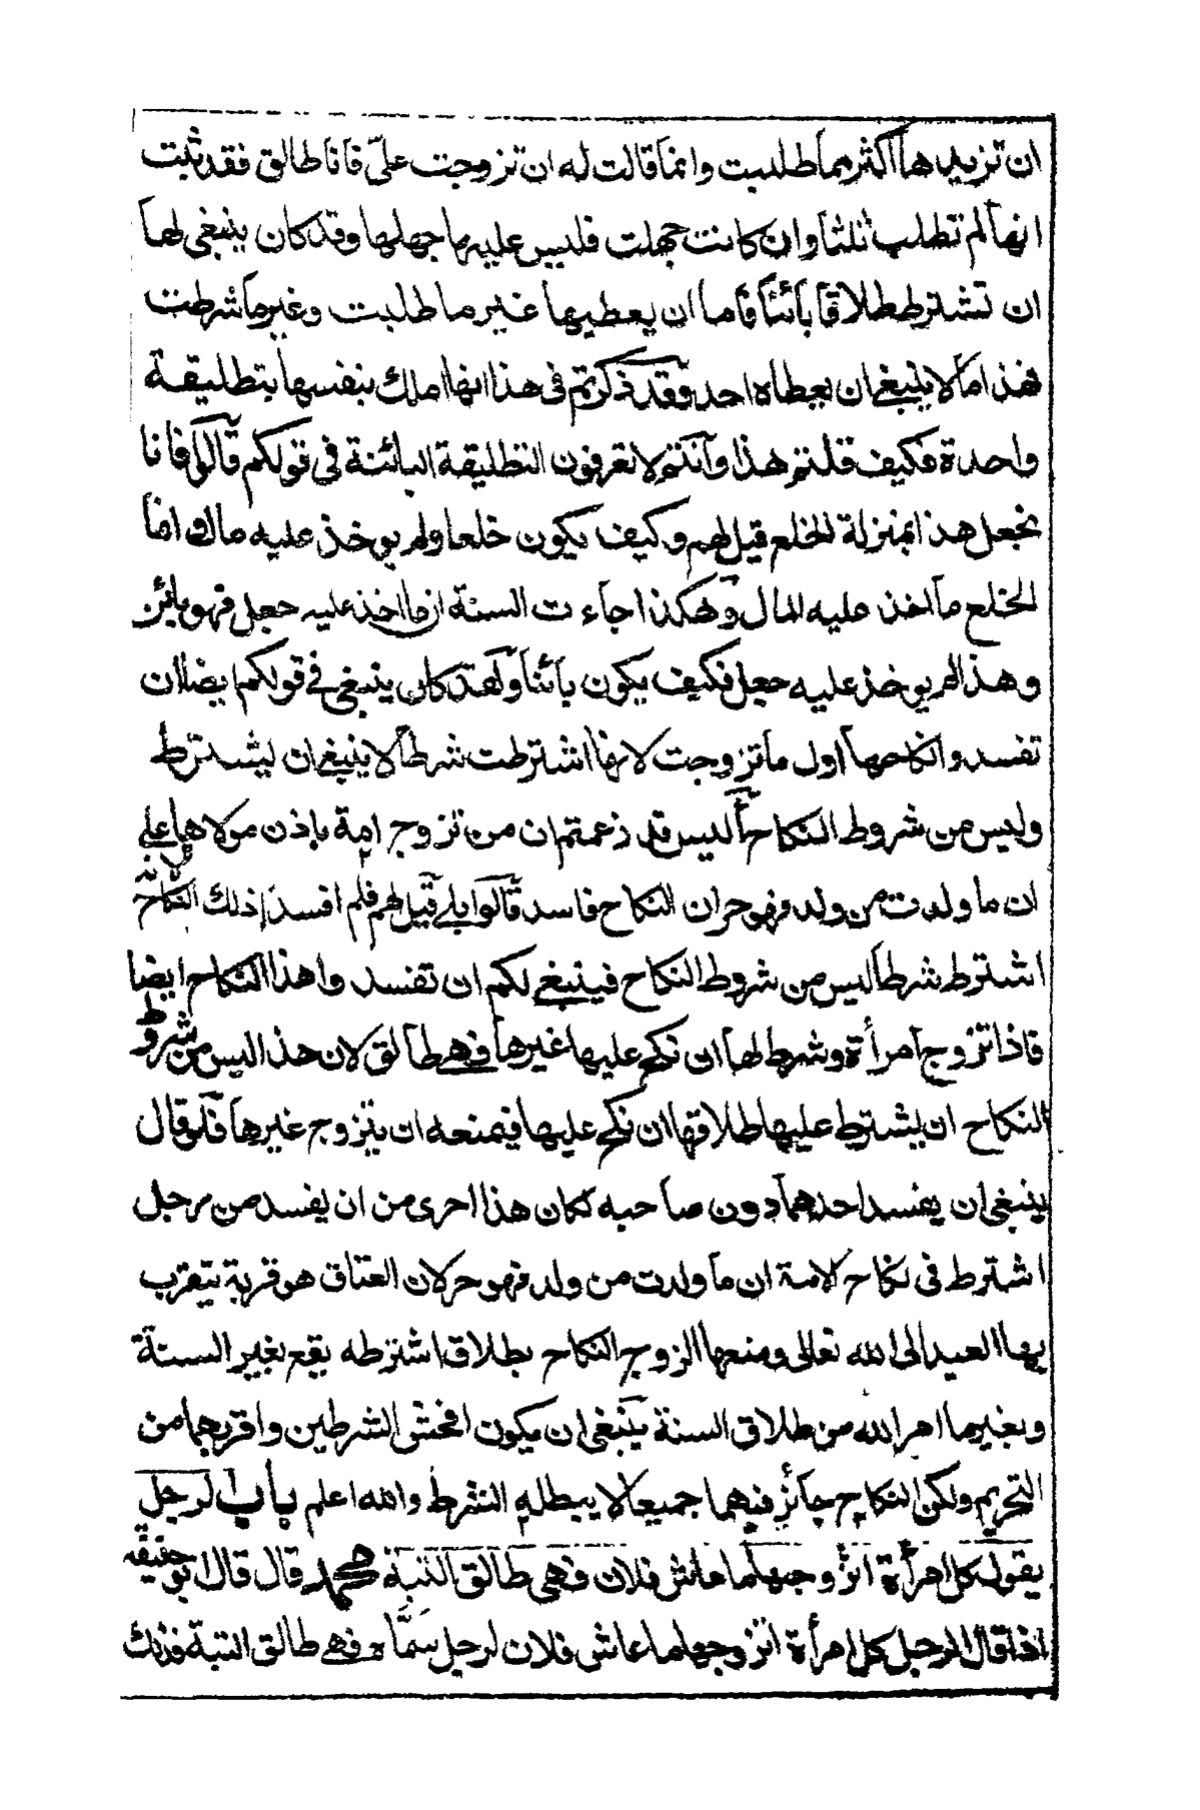 ان تزيدها اكثر مما طلبت وانما قالت له ان تزوجت علىّ فانا طالق فقد ثبت
انها لم تطلب ثلثا وان كانت جهلت فليس عليه ما جهلها وقد كان ينبغى لها
ان تشترط طلاقا بائنا فاما ان يعطيها غير ما طلبت وغير ما شرطت
فهذا ما لا ينبغى ان يعطاه احد وقد ذكرتم فى هذا انها املك بنفسها بتطليقة
واحدة فكيف قلتم هذا وانتم لا تعرفون التطليقة البائنة فى قولكم قالوا فانا
نجعل هذا بمنزلة الخلع قيل لهم وكيف يكون خلعا ولم يوخذ عليه مال وانما
الخلع ما اخذ عليه المال وهكذا جاءت السنة ان ما اخذ عليه جعل فهو بائن
وهذا لم يوخذ عليه جعل فكيف يكون بائنا ولقد كان ينبغى فى قولكم ايضا ان
تفسدوا نكاحها اول ما تزوجت لانها اشترطت شرطا لا ينبغى ان يشترط
وليس من شروط النكاح أليس قد زعمتم ان من تزوج امة باذن مولاها على
ان ما ولدت من ولد فهو حر ان النكاح فاسد قالوا بلى قيل لهم فلم افسد اذلك النكاح لانه
اشترط شرطا ليس من شروط النكاح فينبغى لكم ان تفسدوا هذا النكاح ايضا
فاذا تزوج امرأة وشرط لها ان نكح عليها غيرها فهى طالق لان هذا ليس من شروط
النكاح ان يشترط عليها طلاقها ان نكح عليها فيمنعه ان يتزوج غيرها فلو قال
ينبغى ان يفسد احدهما دون صاحبه لكان هذا احرى من ان يفسد من رجل
اشترط فى نكاح لامة ان ما ولدت من ولد فهو حر لان العتاق هو قربة يتقرب
بها العبد الى الله تعالى ومنعها الزوج النكاح بطلاق اشترطه يقع بغير السنة
وبغير ما امر الله من طلاق السنة ينبغى ان يكون افحش الشرطين واقربهما من
التحريم ولكن النكاح جائز فيهما جميعا لا يبطله الشرط والله اعلم باب الرجل
يقول كل امرأة اتزوجها ما عاش فلان فهى طالق البتة محمد قال قال ابو حنيفة
اذا قال الرجل كل امرأة اتزوجها ما عاش فلان لرجل سمّاه فهى طالق البتة فذلك